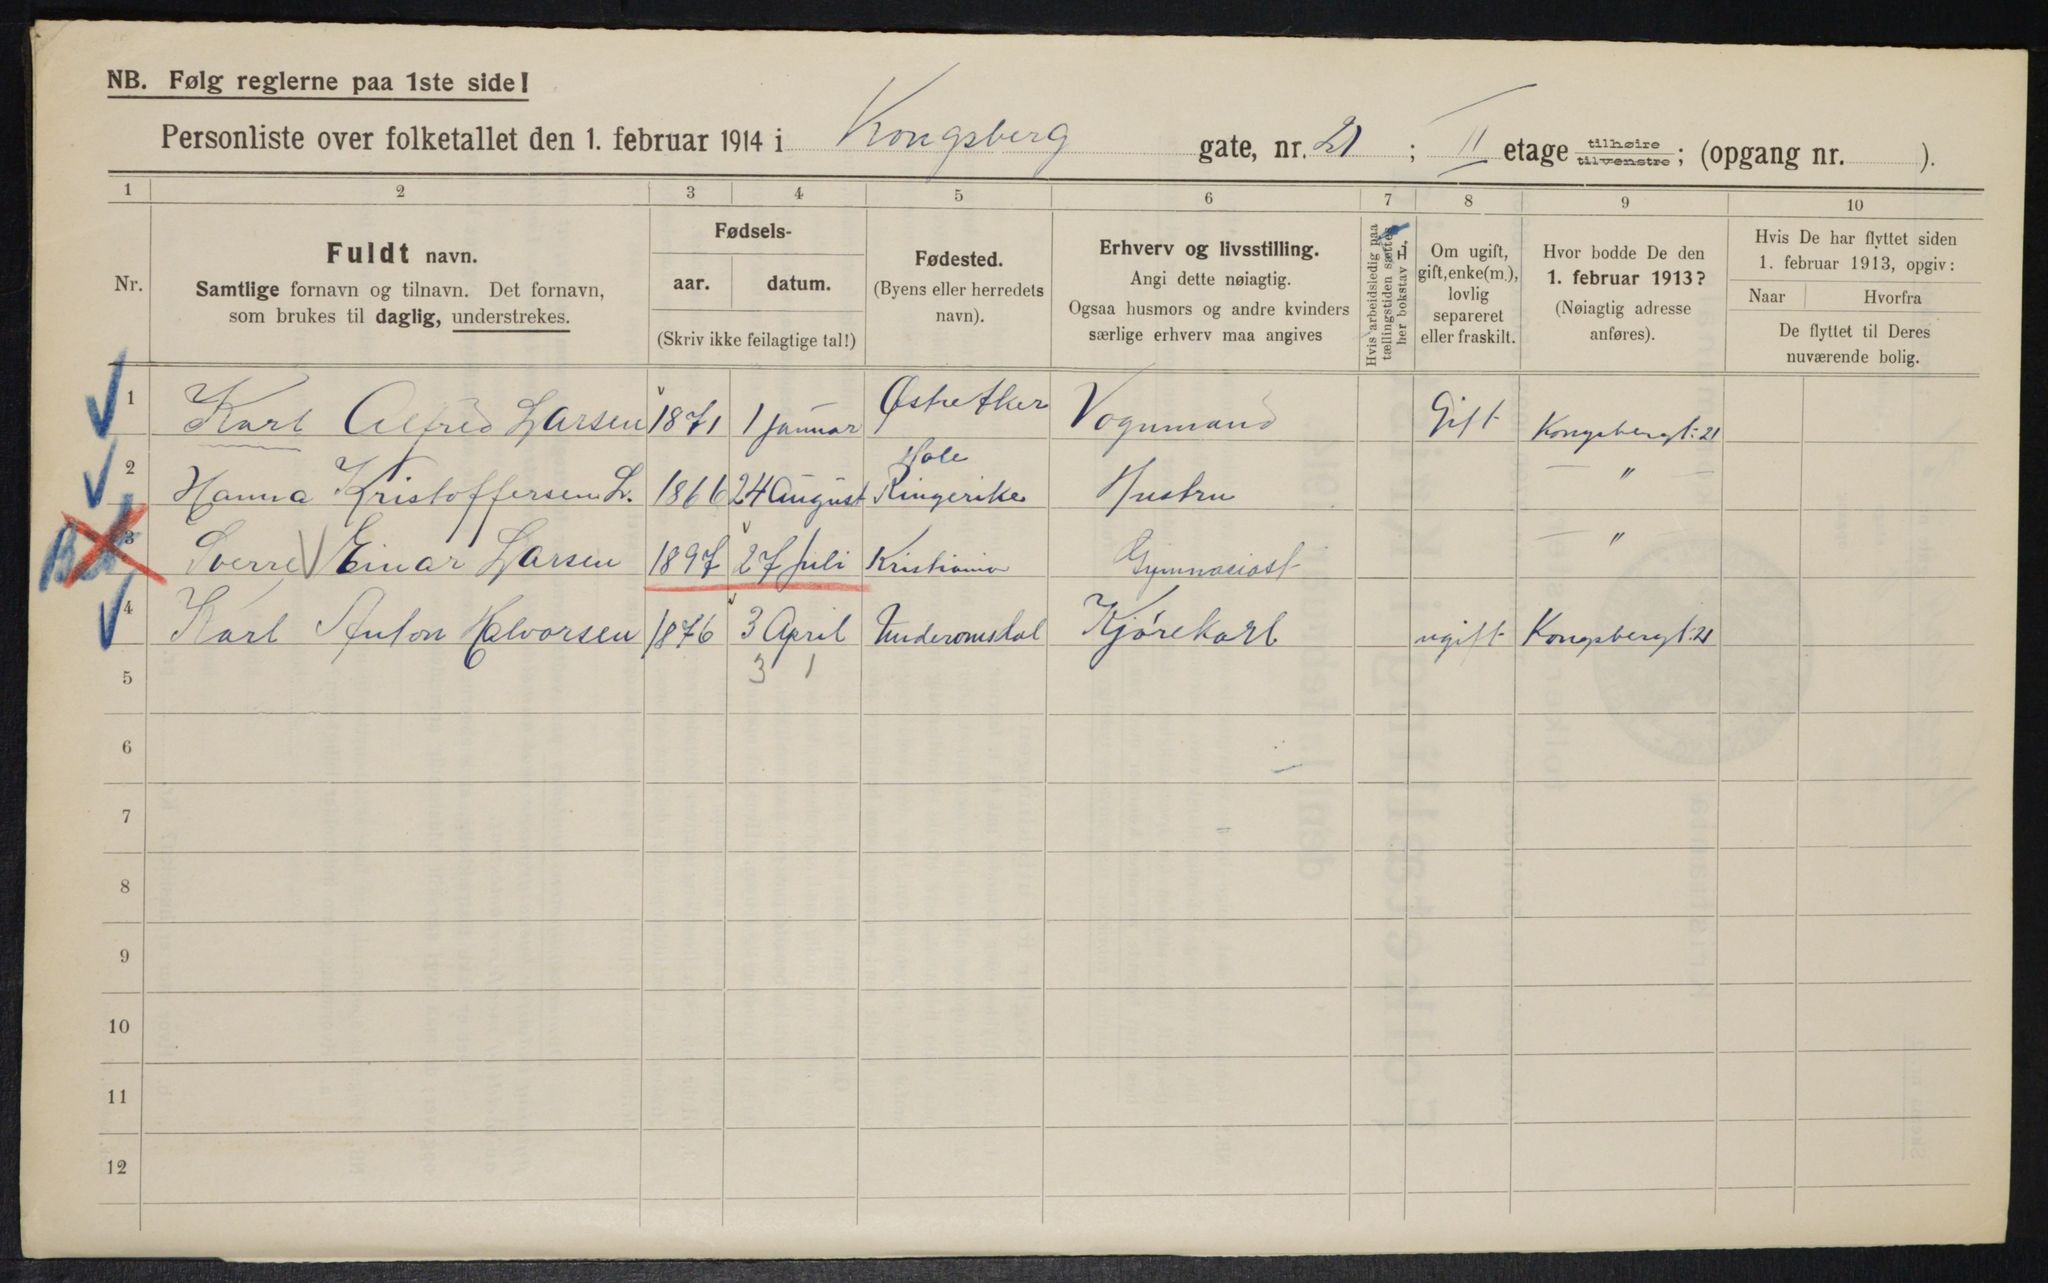 NB. Følg reglerne paa 1ste side!
Personliste over folketallet den 1. februar 1914 i Kongsberg gate, nr. 21 ; II etage tilhøire tilvenstre ; (opgang nr. ).
1 2 3 4 5 6 7 8 9 10
Nr.
Fuldt navn.
Samtlige fornavn og tilnavn. Det fornavn,
som brukes til daglig, understrekes.
Fødsels-
aar. datum.
(Skriv ikke feilagtige tal!)
Fødested.
(Byens eller herredets
navn).
Erhverv og livsstilling.
Angi dette nøiagtig.
Ogsaa husmors og andre kvinders
særlige erhverv maa angives
Hvis arbeidsledig paa
tællingstiden sættes
her bokstav L.
Om ugift,
gift, enke(m.),
lovlig
separeret
eller fraskilt.
Hvor bodde De den
1. februar 1913?
(Nøiagtig adresse
anføres).
Hvis De har flyttet siden
1. februar 1913, opgiv:
Naar Hvorfra
De flyttet til Deres
nuværende bolig.
1 Karl Alfred Larsen 1871 1 januar Østre Aker Vognmand Gift Kongsbergt: 21
2 Hanna Kristoffersen L. 1866 24 August Hole Ringerike Hustru — " —
3 Sverre Einar Larsen 1897 27 Juli Kristiania Gymnasiast — " —
4 Karl Anton Halvorsen 1876 3 April Kjørekarl ugift Kongsbergt: 21
3 1
5
6
7
8
9
10
11
12